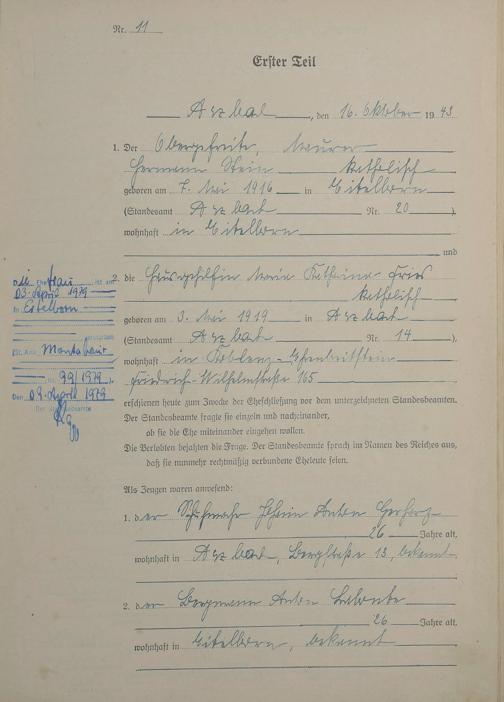 Nr. 11
Erster Teil
Arzbach, den 16. Oktober 1943
1. Der Obergefreite, Maurer
Hermann Stein katholisch
geboren am 7. Mai 1916 in Eitelborn
(Standesamt Arzbach Nr. 20 ),
wohnhaft in Eitelborn
und
2. die Hausgehilfin Maria Katharina Fries
katholisch
geboren am 3. Mai 1919 in Arzbach
(Standesamt Arzbach Nr. 14 ),
wohnhaft in Koblenz-Ehrenbreitstein
Friedrich-Wilhelmstraße 165
erschienen heute zum Zwecke der Eheschließung vor dem unterzeichneten Standesbeamten.
Der Standesbeamte fragte sie einzeln und nacheinander,
ob sie die Ehe miteinander eingehen wollen.
Die Verlobten bejahten die Frage. Der Standesbeamte sprach im Namen des Reiches aus,
daß sie nunmehr rechtmäßig verbundene Eheleute seien.
Als Zeugen waren anwesend:
1. der Johann Anton
26 Jahre alt,
wohnhaft in Arzbach, Bergstraße 13, bekannt
2. der Bergmann Anton
26 Jahre alt,
wohnhaft in Eitelborn, bekannt
die Ehefrau ist am
03. April 1979
in Eitelborn
verstorben
(St. Amt Montabaur
Nr. 99/1979 ).
Den 09. April 1979
Der Standesbeamte